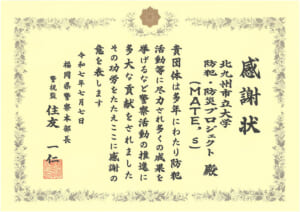 感謝状
北九州市立大学
防犯・防災プロジェクト
(MATE's)
殿
貴団体は多年にわたり防犯
活動等に尽力され多くの成果を
挙げるなど警察活動の推進に
多大な貢献をされました
その功労をたたえここに感謝の
意を表します
令和七年七月七日
福岡県警察本部長
警視監 住友一仁